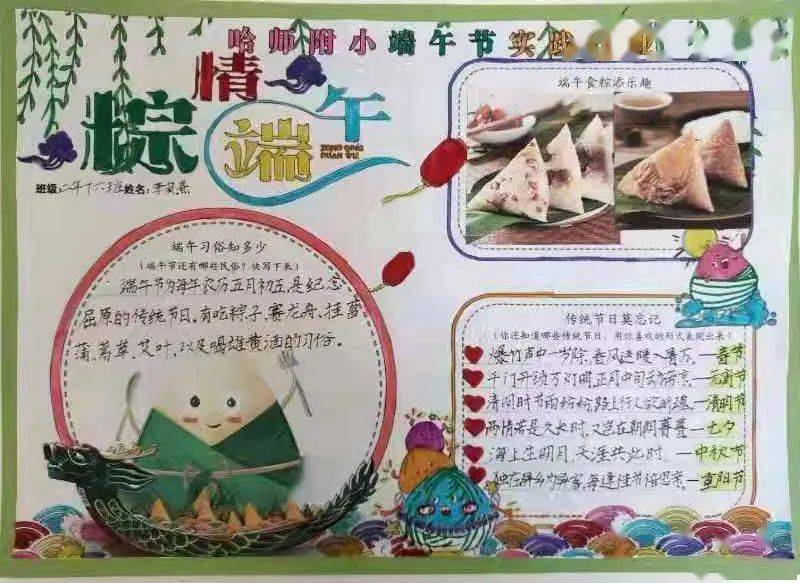 哈师附小端午节实践
粽情端午
ZONG QING
DUAN WU
班级:二年十六班姓名:李
端午食粽添乐趣
端午习俗知多少
(端午节还有哪些民俗？快写下来)
端午节为每年农历五月初五,是纪念
屈原的传统节日。有吃粽子、赛龙舟、挂菖
蒲、蒿草、艾叶,以及喝雄黄酒的习俗。
传统节日莫忘记
(你还知道哪些传统节日，用你喜欢的形式表现出来)
爆竹声中一岁除,春风送暖入屠苏。—春节
千门开锁万灯明,正月中旬动帝京。—元宵节
清明时节雨纷纷,路上行人欲断魂。—清明节
两情若是久长时,又岂在朝朝暮暮—七夕
海上生明月,天涯共此时。—中秋节
独在异乡为异客,每逢佳节倍思亲。—重阳节